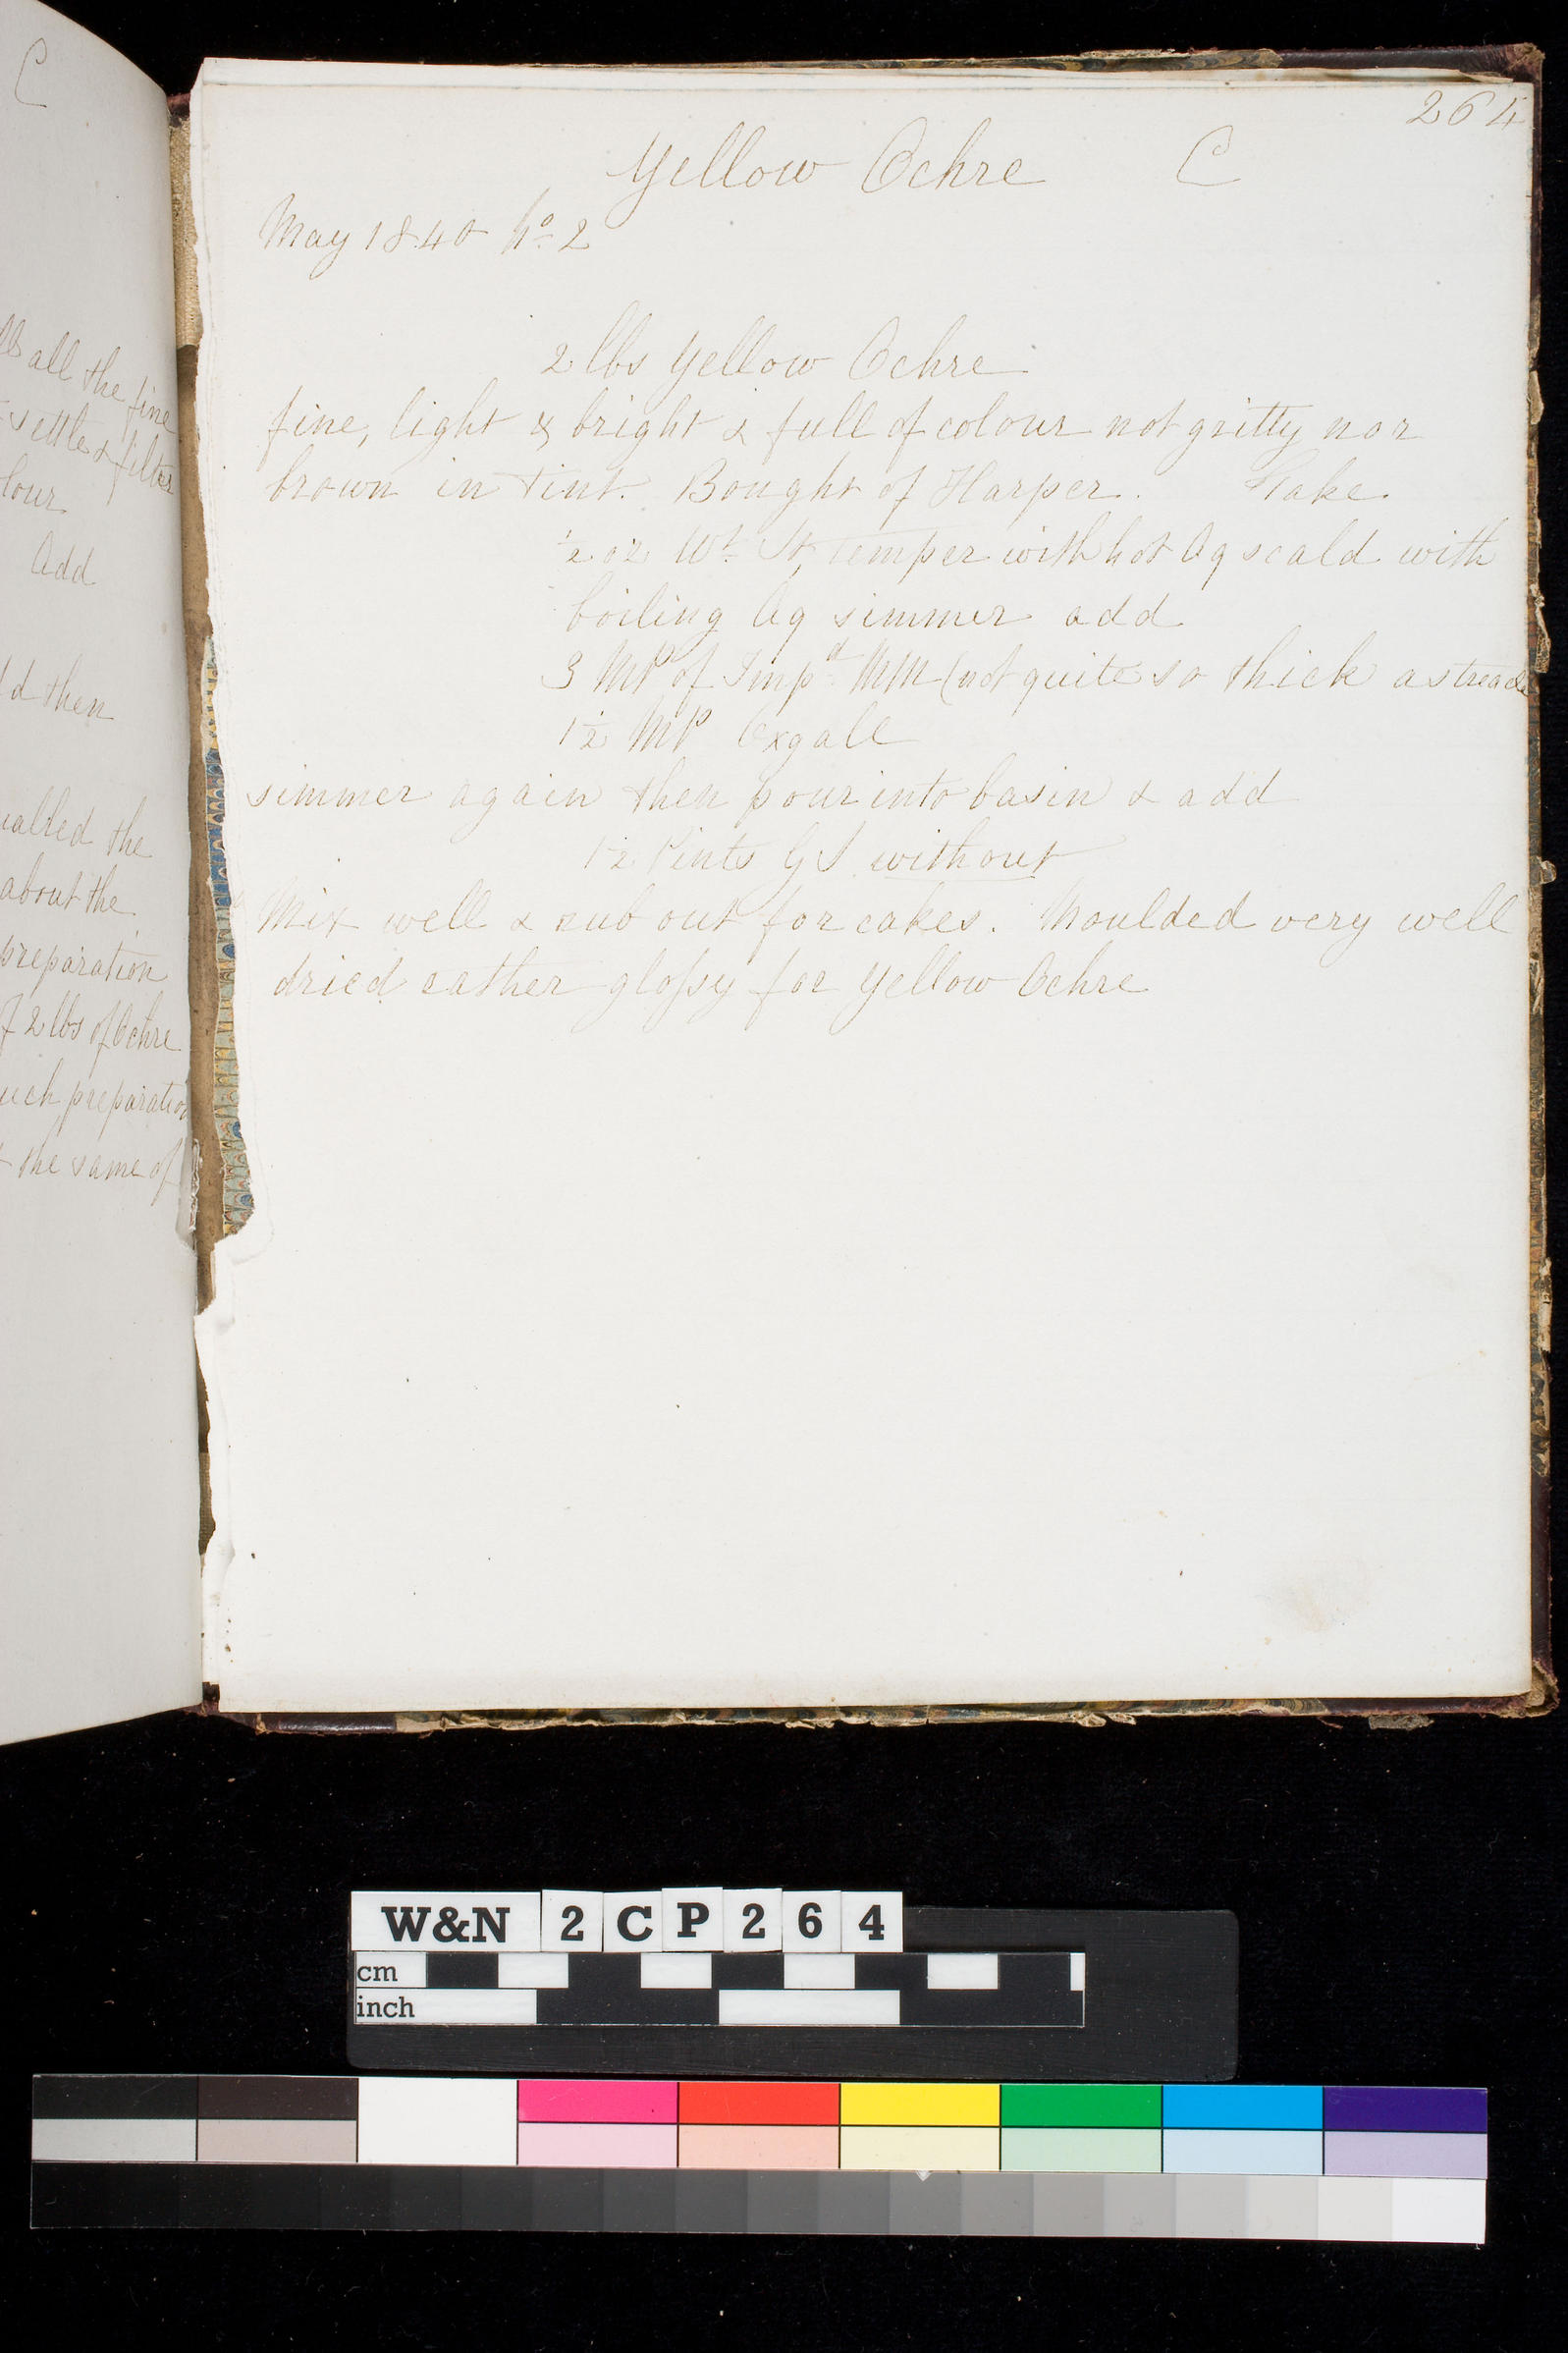 C
all the fine
settle & filter
lour
Add
d then
the
about the
preparation
of 2 lbs of Ochre
uch preparation
the same of
264
Yellow Ochre C
May 1840 No 2
2 lbs Yellow Ochre
fine, light & bright & full of colour not gritty nor
brown in tint. Bought of Harper. Take
½ oz Wt St, temper with hot Aq scald with
boiling Aq simmer add
3 MP of Impd MM (not quite so thick as treacle
1½ MP Oxgall
simmer again then pour into basin & add
1½ Pints GS without
Mix well & rub out for cakes. Moulded very well
dried rather glossy for Yellow Ochre
W&N 2 C P 2 6 4
cm
inch